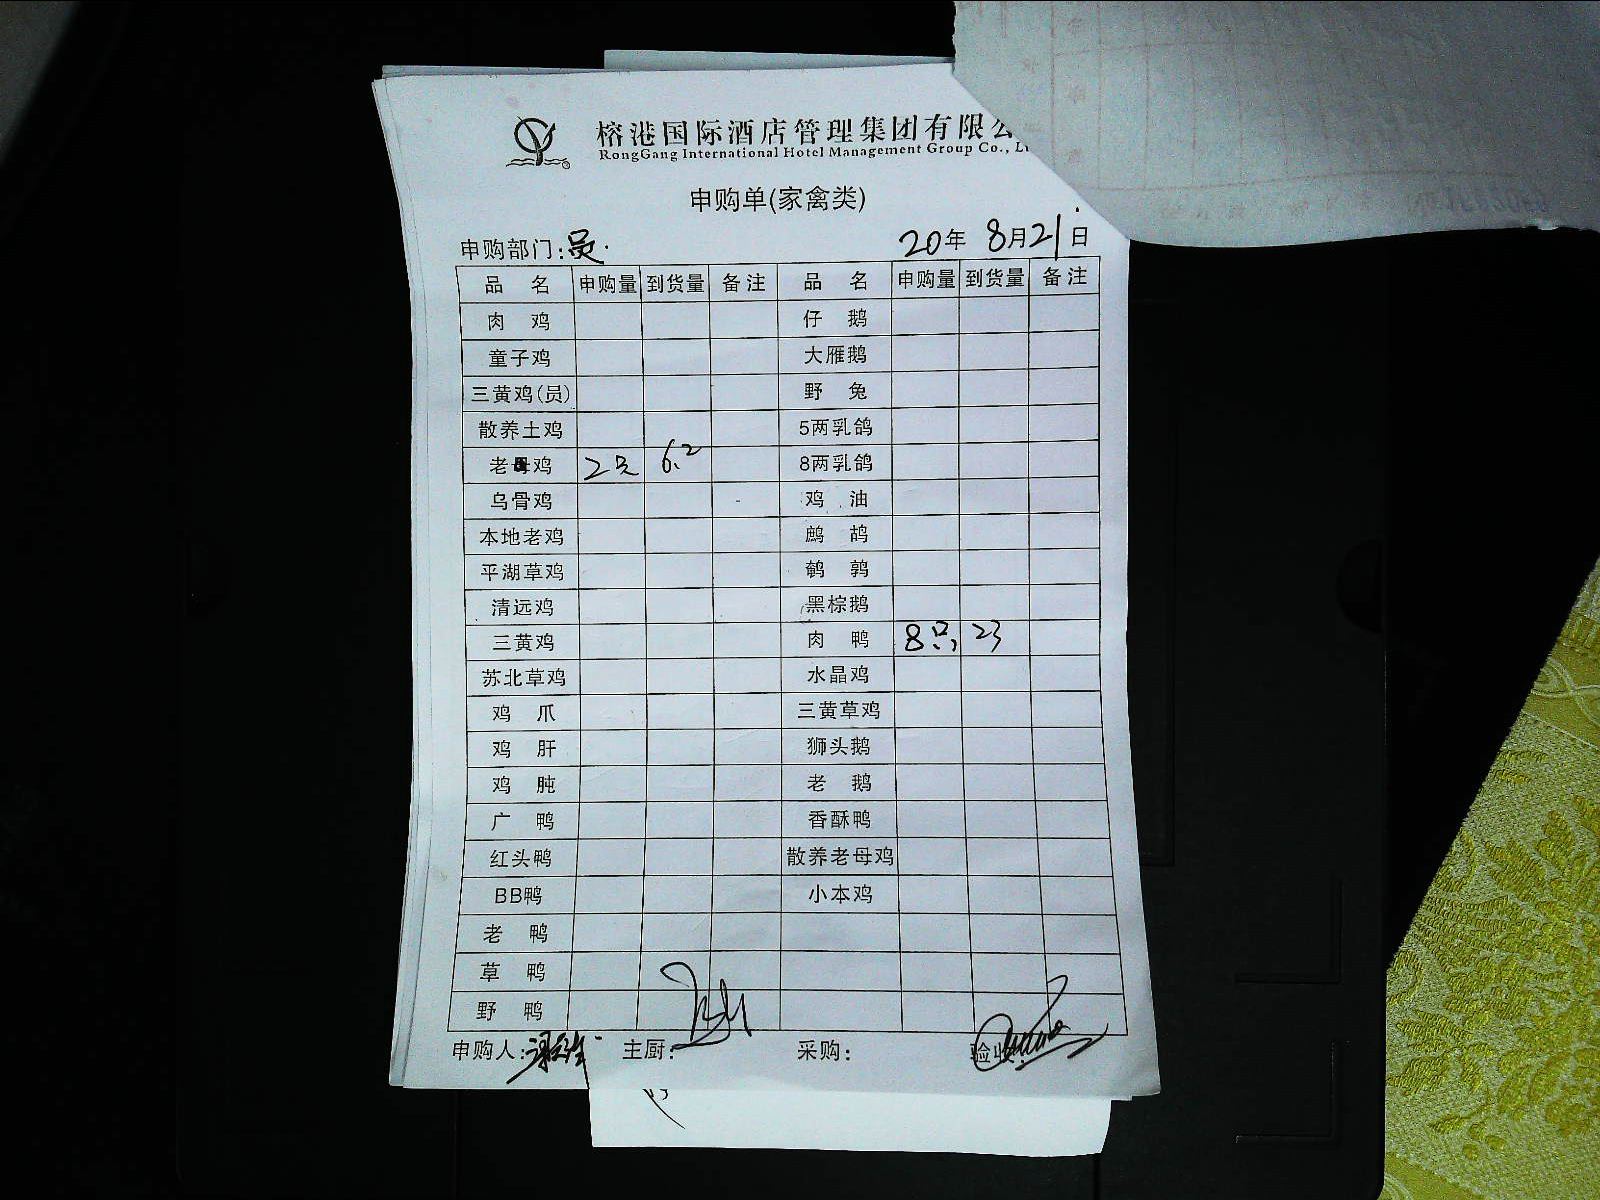 榕港国际酒店管理集团有限公
RongGang International Hotel Management Group Co., L
申购单(家禽类)
申购部门: 20年 8月21日
品 名 申购量 到货量 备注 品 名 申购量 到货量 备注
肉 鸡 仔 鹅
童子鸡 大雁鹅
三黄鸡(员) 野 兔
散养土鸡 5两乳鸽
老母鸡 2只 6.2 8两乳鸽
乌骨鸡 鸡 油
本地老鸡 鹧 鸪
平湖草鸡 鹌 鹑
清远鸡 黑棕鹅
三黄鸡 肉 鸭 8只, 23
苏北草鸡 水晶鸡
鸡 爪 三黄草鸡
鸡 肝 狮头鹅
鸡 肫 老 鹅
广 鸭 香酥鸭
红头鸭 散养老母鸡
BB鸭 小本鸡
老 鸭
草 鸭
野 鸭
申购人: 主厨: 采购: 验收: